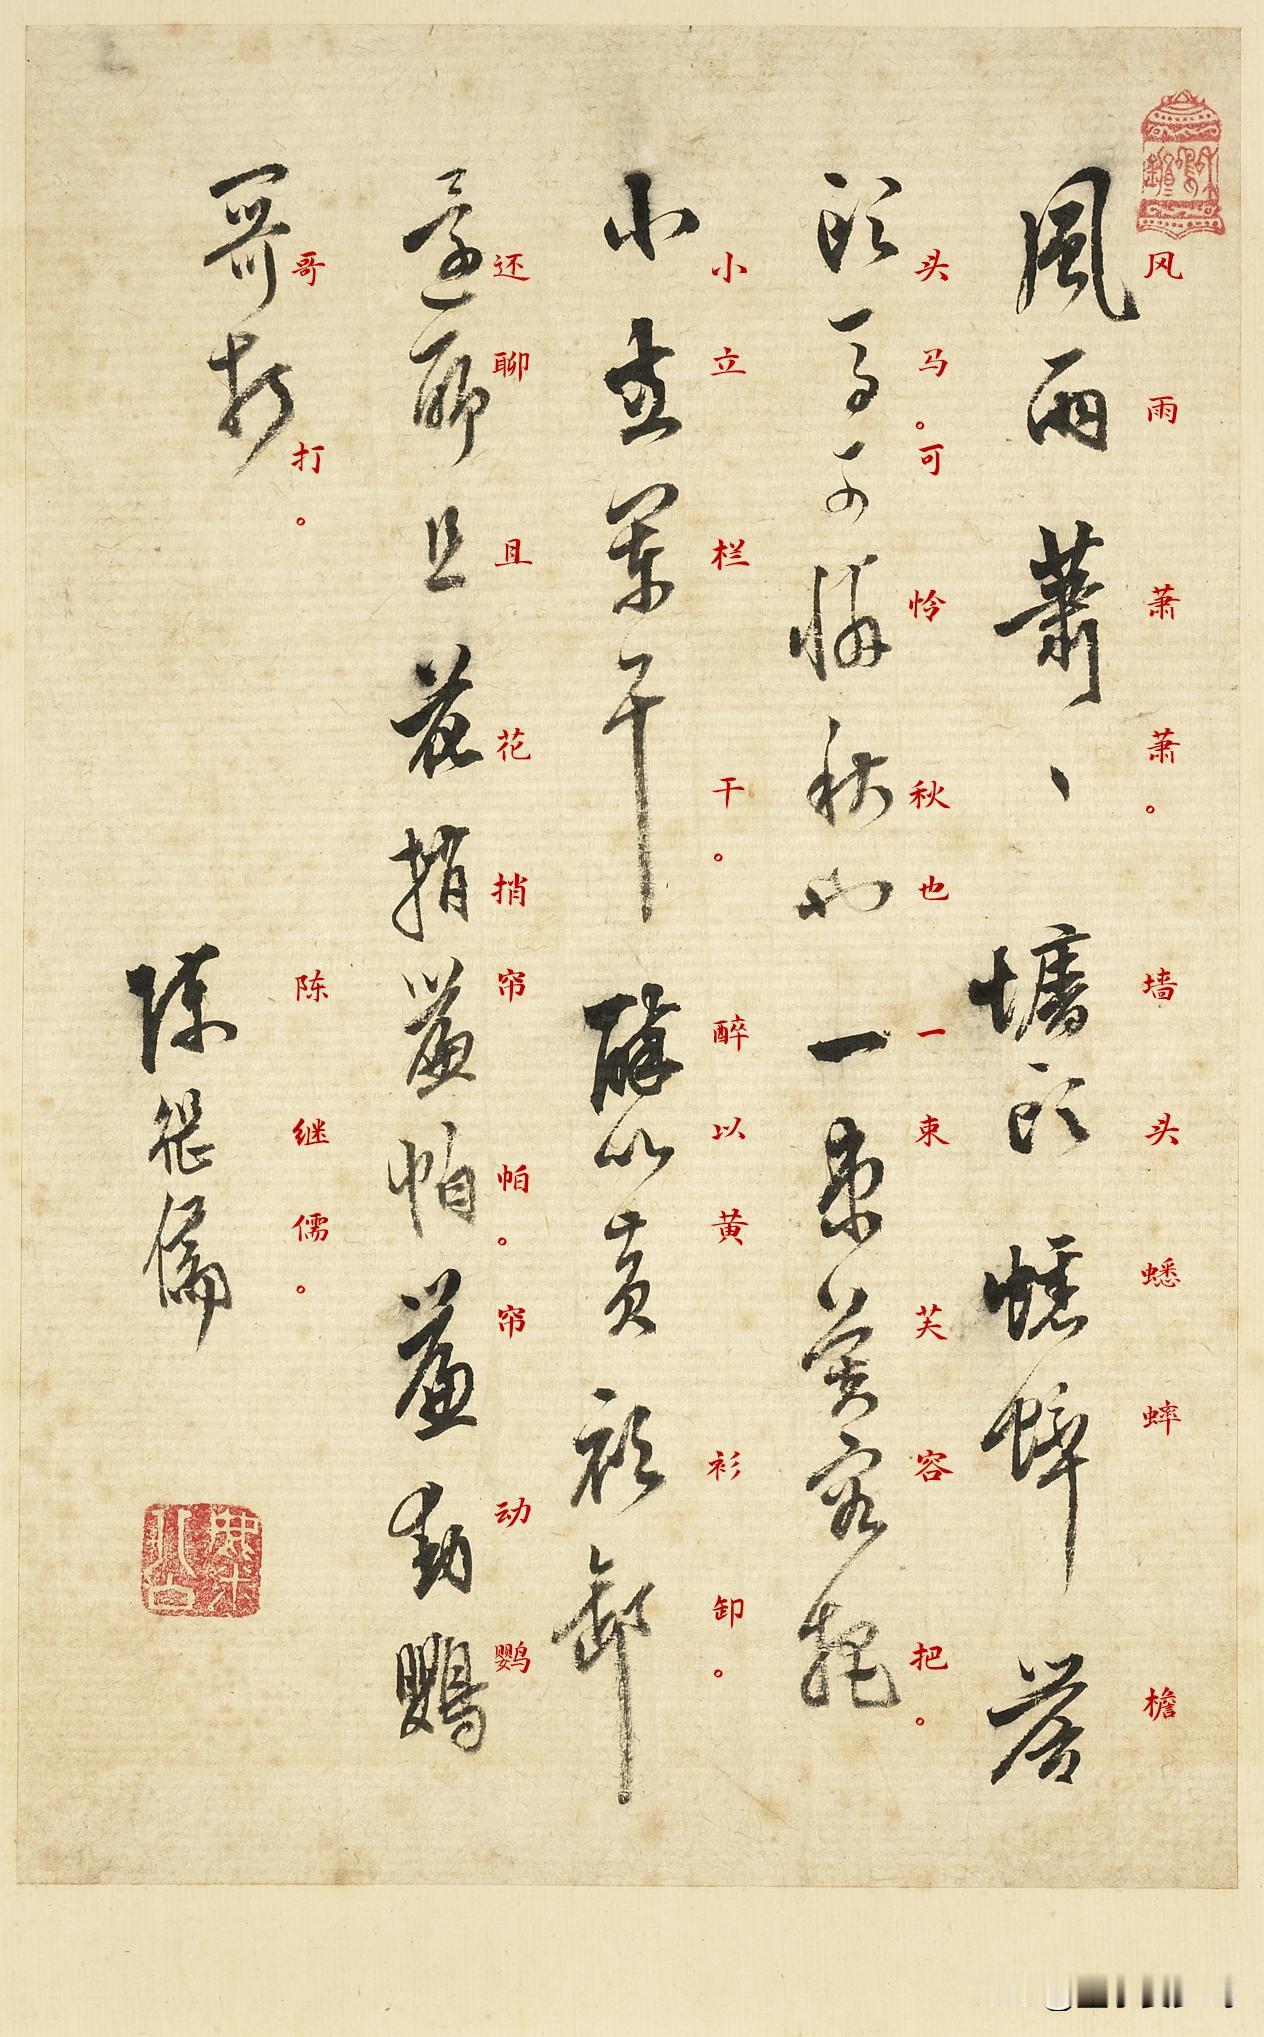 风雨萧萧。墙头蟋蟀檐
風雨蕭丶墻頭蟋蟀簷
头马。可怜秋也一束芙容把。
頭馬可憐秋也一束芙容把
小立栏干。醉以黄衫卸。
小立闌干醉以黃衫卸
还聊且花捎帘帕。帘动鹦
還聊且花捎簾帕簾動鸚
哥打。
哥打
陈继儒。
陳繼儒